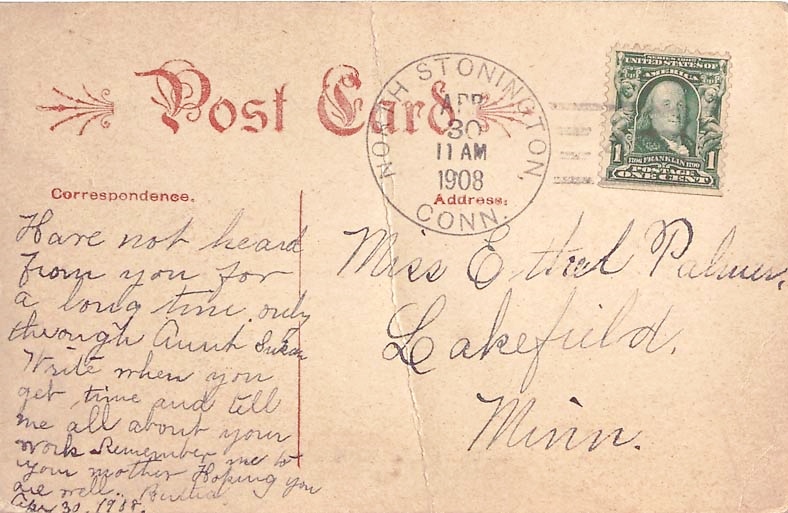 Post Card
NORTH STONINGTON,
APR
30
11 AM
1908
CONN.
SERIES 1902
UNITED STATES OF
AMERICA
1 FRANKLIN 1
POSTAGE
ONE CENT
Correspondence.
Have not heard
from you for
a long time only
through Aunt Susan
Write when you
get time and tell
me all about your
work Remember me to
your mother Hoping you
are well.
Apr 30, 1908.
Address:
Miss Ethel Palmer,
Lakefield,
Minn.